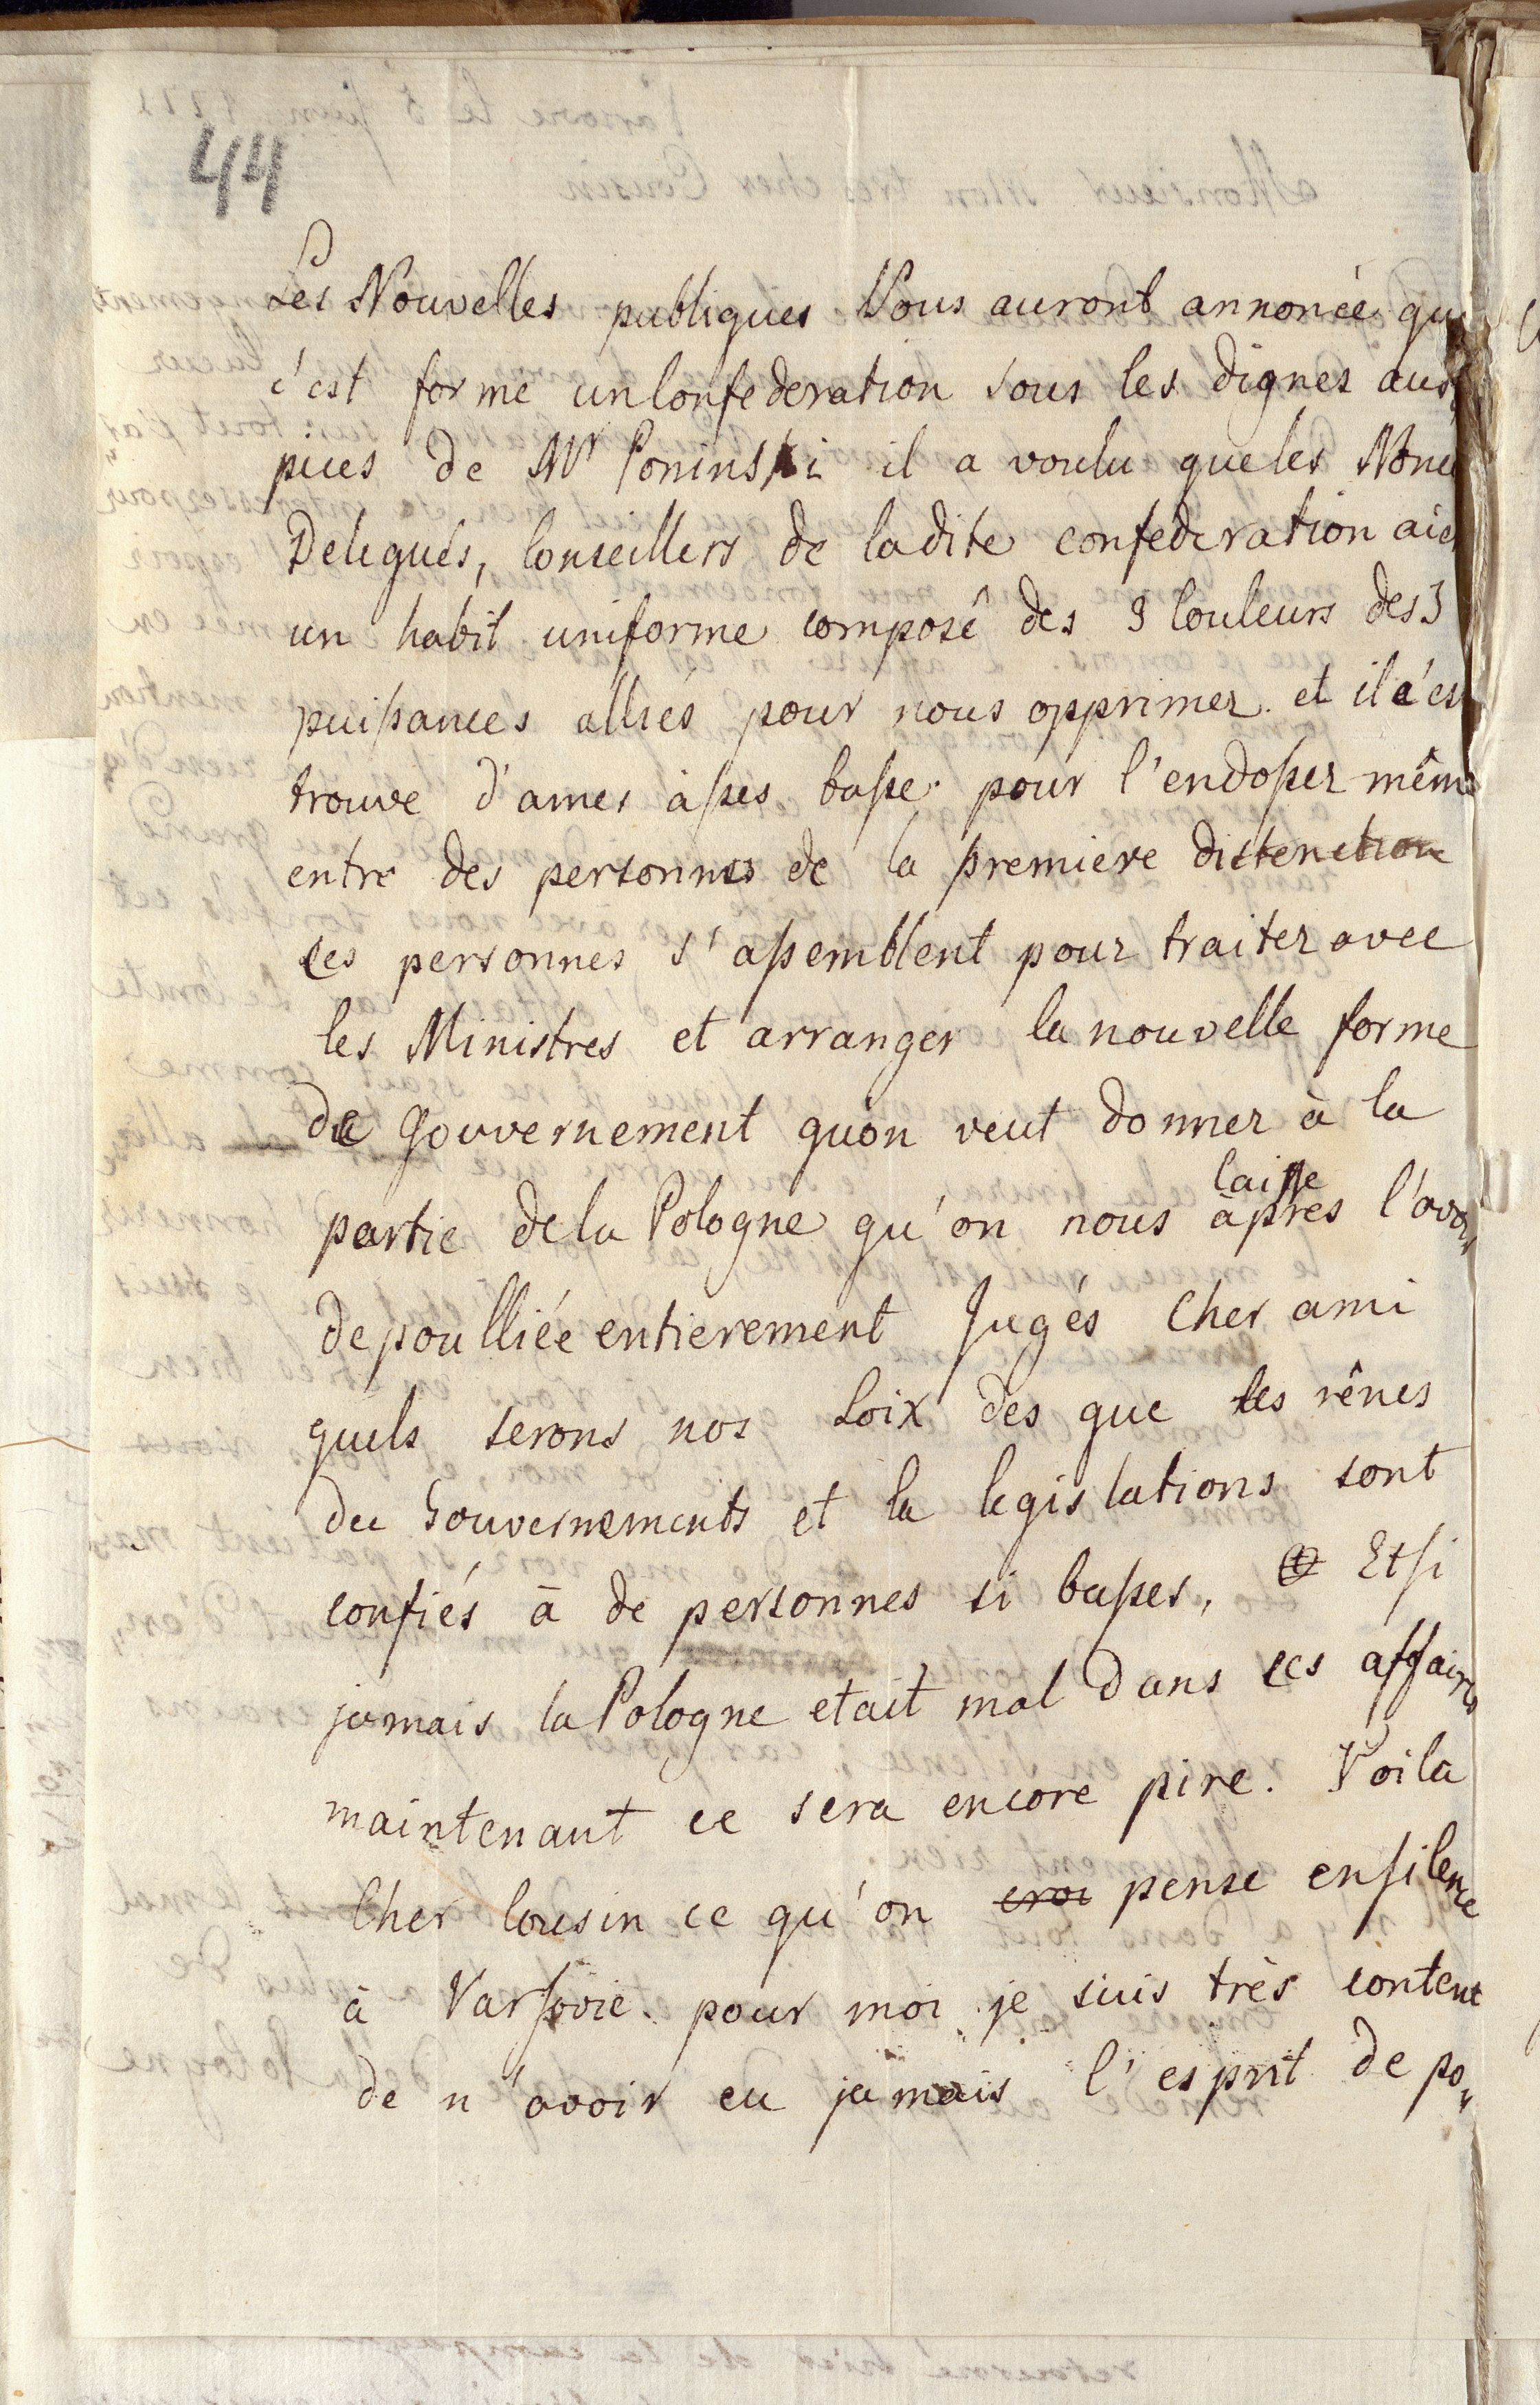 44
Les Nouvelles publiques Vous auront annoncée que
c'est formé un Confederation sous les dignes aus,
pices de Mr Poninski il a voulu que les Nonc
Delegués, Conseillers de ladite confederation aie
un habit uniforme composê des 3 Couleurs des 3
puißances alliés pour nous opprimer. et il c'est
trouve d'ames àßes baße. pour l'endoßer même
entre des personnes de la premiere distenction
ces personnes s'aßemblent pour traiter avec
les Ministres et arranger la nouvelle forme
de Gouvernement qu'on veut donner à la
partie de la Pologne qu'on nous laiße àpres l'avoi
depoulliée entierement Jugés Cher ami
quels serons nos Loix des que les rênes
du Gouvernements et la legislations sont
confiés à de personnes si baßes, Et si
jamais la Pologne etait mal dans ces affaires
maintenant ce sera encore pire. Voila
Cher Cousin ce qu'on croi pense en silence
à Varsovie. pour moi je suis très content
de n'avoir eu jamais l'esprit de po,,